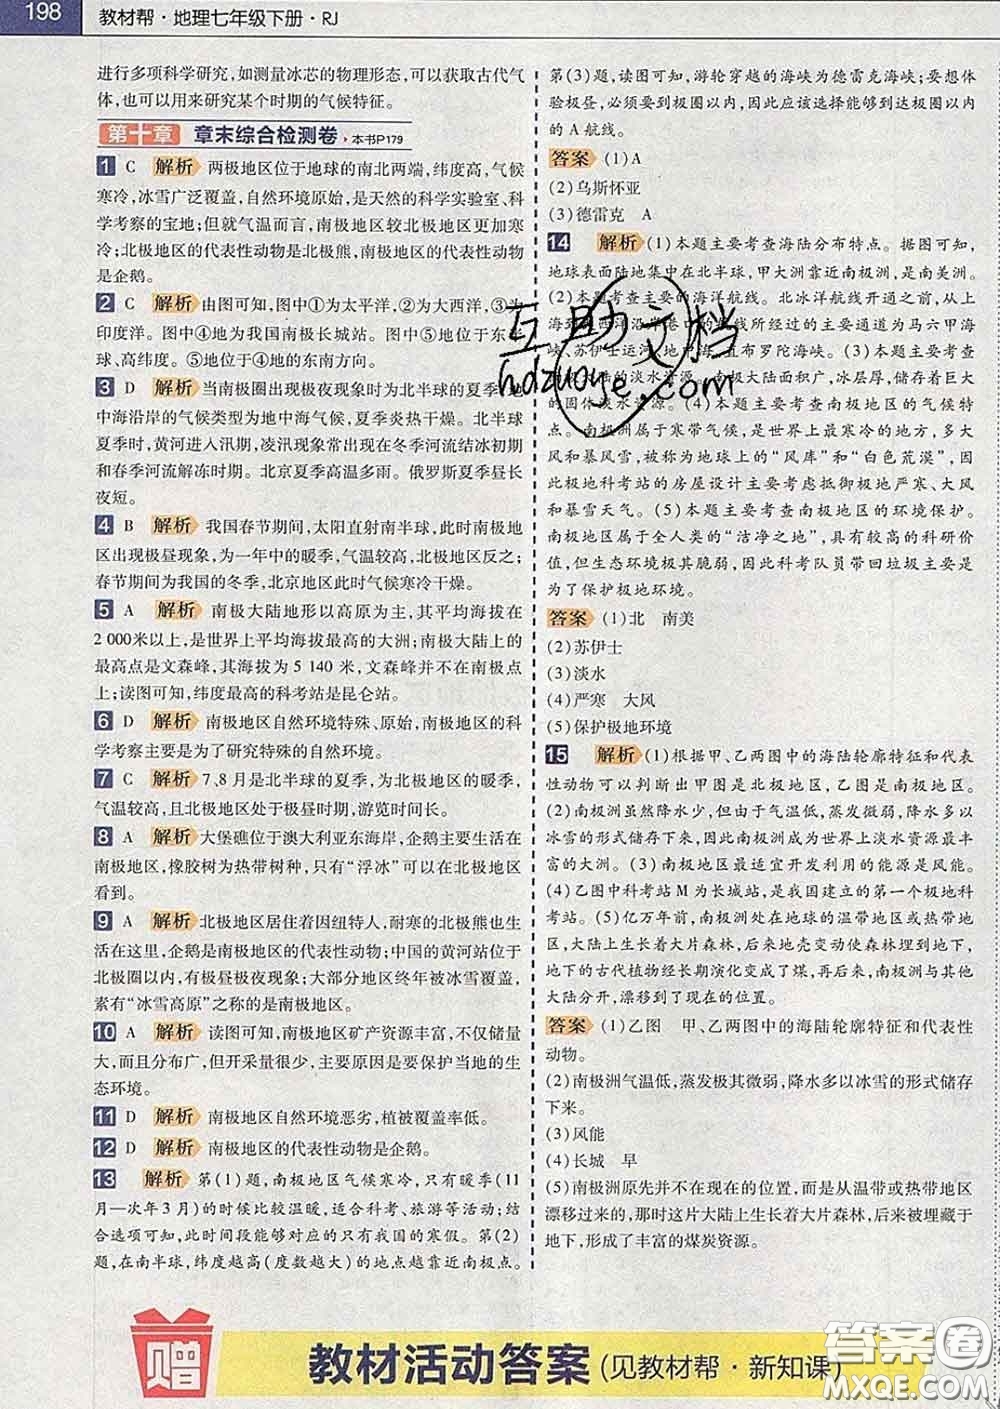 198 教材帮·地理七年级下册·RJ
进行多项科学研究,如测量冰芯的物理形态,可以获取古代气
体,也可以用来研究某个时期的气候特征。
第十章 章末综合检测卷 ▶本书P179
1 C 解析 两极地区位于地球的南北两端,纬度高,气候
寒冷,冰雪广泛覆盖,自然环境原始,是天然的科学实验室、科
学考察的宝地;但就气温而言,南极地区较北极地区更加寒
冷;北极地区的代表性动物是北极熊,南极地区的代表性动物
是企鹅。
2 C 解析 由图可知,图中①为太平洋,②为大西洋,③为
印度洋。图中④地为我国南极长城站。图中⑤地位于东半
球、高纬度。⑤地位于④地的东南方向。
3 D 解析 当南极圈出现极夜现象时为北半球的夏季,地
中海沿岸的气候类型为地中海气候,夏季炎热干燥。北半球
夏季时,黄河进入汛期,凌汛现象常出现在冬季河流结冰初期
和春季河流解冻时期。北京夏季高温多雨。俄罗斯夏季昼长
夜短。
4 B 解析 我国春节期间,太阳直射南半球,此时南极地
区出现极昼现象,为一年中的暖季,气温较高,北极地区反之;
春节期间为我国的冬季,北京地区此时气候寒冷干燥。
5 A 解析 南极大陆地形以高原为主,其平均海拔在
2 000米以上,是世界上平均海拔最高的大洲;南极大陆上的
最高点是文森峰,其海拔为5 140米,文森峰并不在南极点
上;读图可知,纬度最高的科考站是昆仑站。
6 D 解析 南极地区自然环境特殊、原始,南极地区的科
学考察主要是为了研究特殊的自然环境。
7 C 解析 7、8月是北半球的夏季,为北极地区的暖季,
气温较高,且北极地区处于极昼时期,游览时间长。
8 A 解析 大堡礁位于澳大利亚东海岸,企鹅主要生活在
南极地区,橡胶树为热带树种,只有“浮冰”可以在北极地区
看到。
9 A 解析 北极地区居住着因纽特人,耐寒的北极熊也生
活在这里,企鹅是南极地区的代表性动物;中国的黄河站位于
北极圈以内,有极昼极夜现象;大部分地区终年被冰雪覆盖,
素有“冰雪高原”之称的是南极地区。
10 A 解析 读图可知,南极地区矿产资源丰富,不仅储量
大,而且分布广,但开采量很少,主要原因是要保护当地的生
态环境。
11 D 解析 南极地区自然环境恶劣,植被覆盖率低。
12 D 解析 南极地区的代表性动物是企鹅。
13 解析 第(1)题,南极地区气候寒冷,只有暖季(11
月—次年3月)的时候比较温暖,适合科考、旅游等活动;结
合选项可知,此时间段能够对应的只有我国的寒假。第(2)
题,在南半球,纬度越高(度数越大)的地点越靠近南极点。
第(3)题,读图可知,游轮穿越的海峡为德雷克海峡;要想体
验极昼,必须要到极圈以内,因此应该选择能够到达极圈以内
的A航线。
答案 (1)A
(2)乌斯怀亚
(3)德雷克 A
14 解析 (1)本题主要考查海陆分布特点。据图可知,
地球表面陆地集中在北半球,甲大洲靠近南极洲,是南美洲。
(2)本题考查主要的海洋航线。北冰洋航线开通之前,从上
海到欧洲西部沿岸港口的航线所经过的主要通道为马六甲海
峡、苏伊士运河、地中海、直布罗陀海峡。(3)本题主要考查
南极大陆的淡水资源。南极大陆面积广,冰层厚,储存着巨大
的固体淡水资源。(4)本题主要考查南极地区的气候特
点。南极洲属于寒带气候,是世界上最寒冷的地方,多大
风和暴风雪,被称为地球上的“风库”和“白色荒漠”,因
此极地科考站的房屋设计主要考虑抵御极地严寒、大风
和暴雪天气。(5)本题主要考查南极地区的环境保护。
南极地区属于全人类的“洁净之地”,具有较高的科研价
值,但生态环境极其脆弱,因此科考队员带回垃圾主要是
为了保护极地环境。
答案 (1)北 南美
(2)苏伊士
(3)淡水
(4)严寒 大风
(5)保护极地环境
15 解析 (1)根据甲、乙两图中的海陆轮廓特征和代表
性动物可以判断出甲图是北极地区,乙图是南极地区。
(2)南极洲虽然降水少,但由于气温低,蒸发微弱,降水多以
冰雪的形式储存下来,因此南极洲成为世界上淡水资源最丰
富的大洲。(3)南极地区最适宜开发利用的能源是风能。
(4)乙图中科考站M为长城站,是我国建立的第一个极地科
考站。(5)亿万年前,南极洲处在地球的温带地区或热带地
区,大陆上生长着大片森林,后来地壳变动使森林埋到地下,
地下的古代植物经长期演化变成了煤,再后来,南极洲与其他
大陆分开,漂移到了现在的位置。
答案 (1)乙图 甲、乙两图中的海陆轮廓特征和代表性
动物。
(2)南极洲气温低,蒸发极其微弱,降水多以冰雪的形式储存
下来。
(3)风能
(4)长城 早
(5)南极洲原先并不在现在的位置,而是从温带或热带地区
漂移过来的,那时这片大陆上生长着大片森林,后来被埋藏于
地下,形成了丰富的煤炭资源。
互助文档
hdzuoye.com
赠 教材活动答案(见教材帮·新知课)
答案圈
MXQE.COM